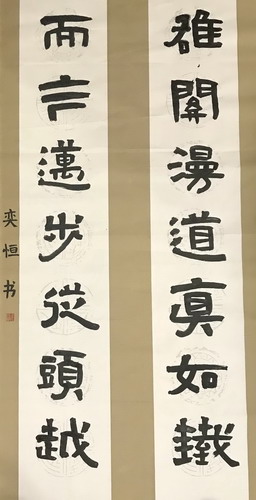 雄關漫道真如鐵
而今邁步從頭越
奕恒书